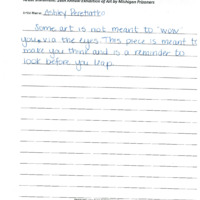 Artist Statement, 26th Annual Exhibition of Art by Michigan Prisoners
Artist Name: Ashley
Some art is not meant to "wow
you" via the eyes. This piece is meant to
make you think and is a reminder to
look before you leap.